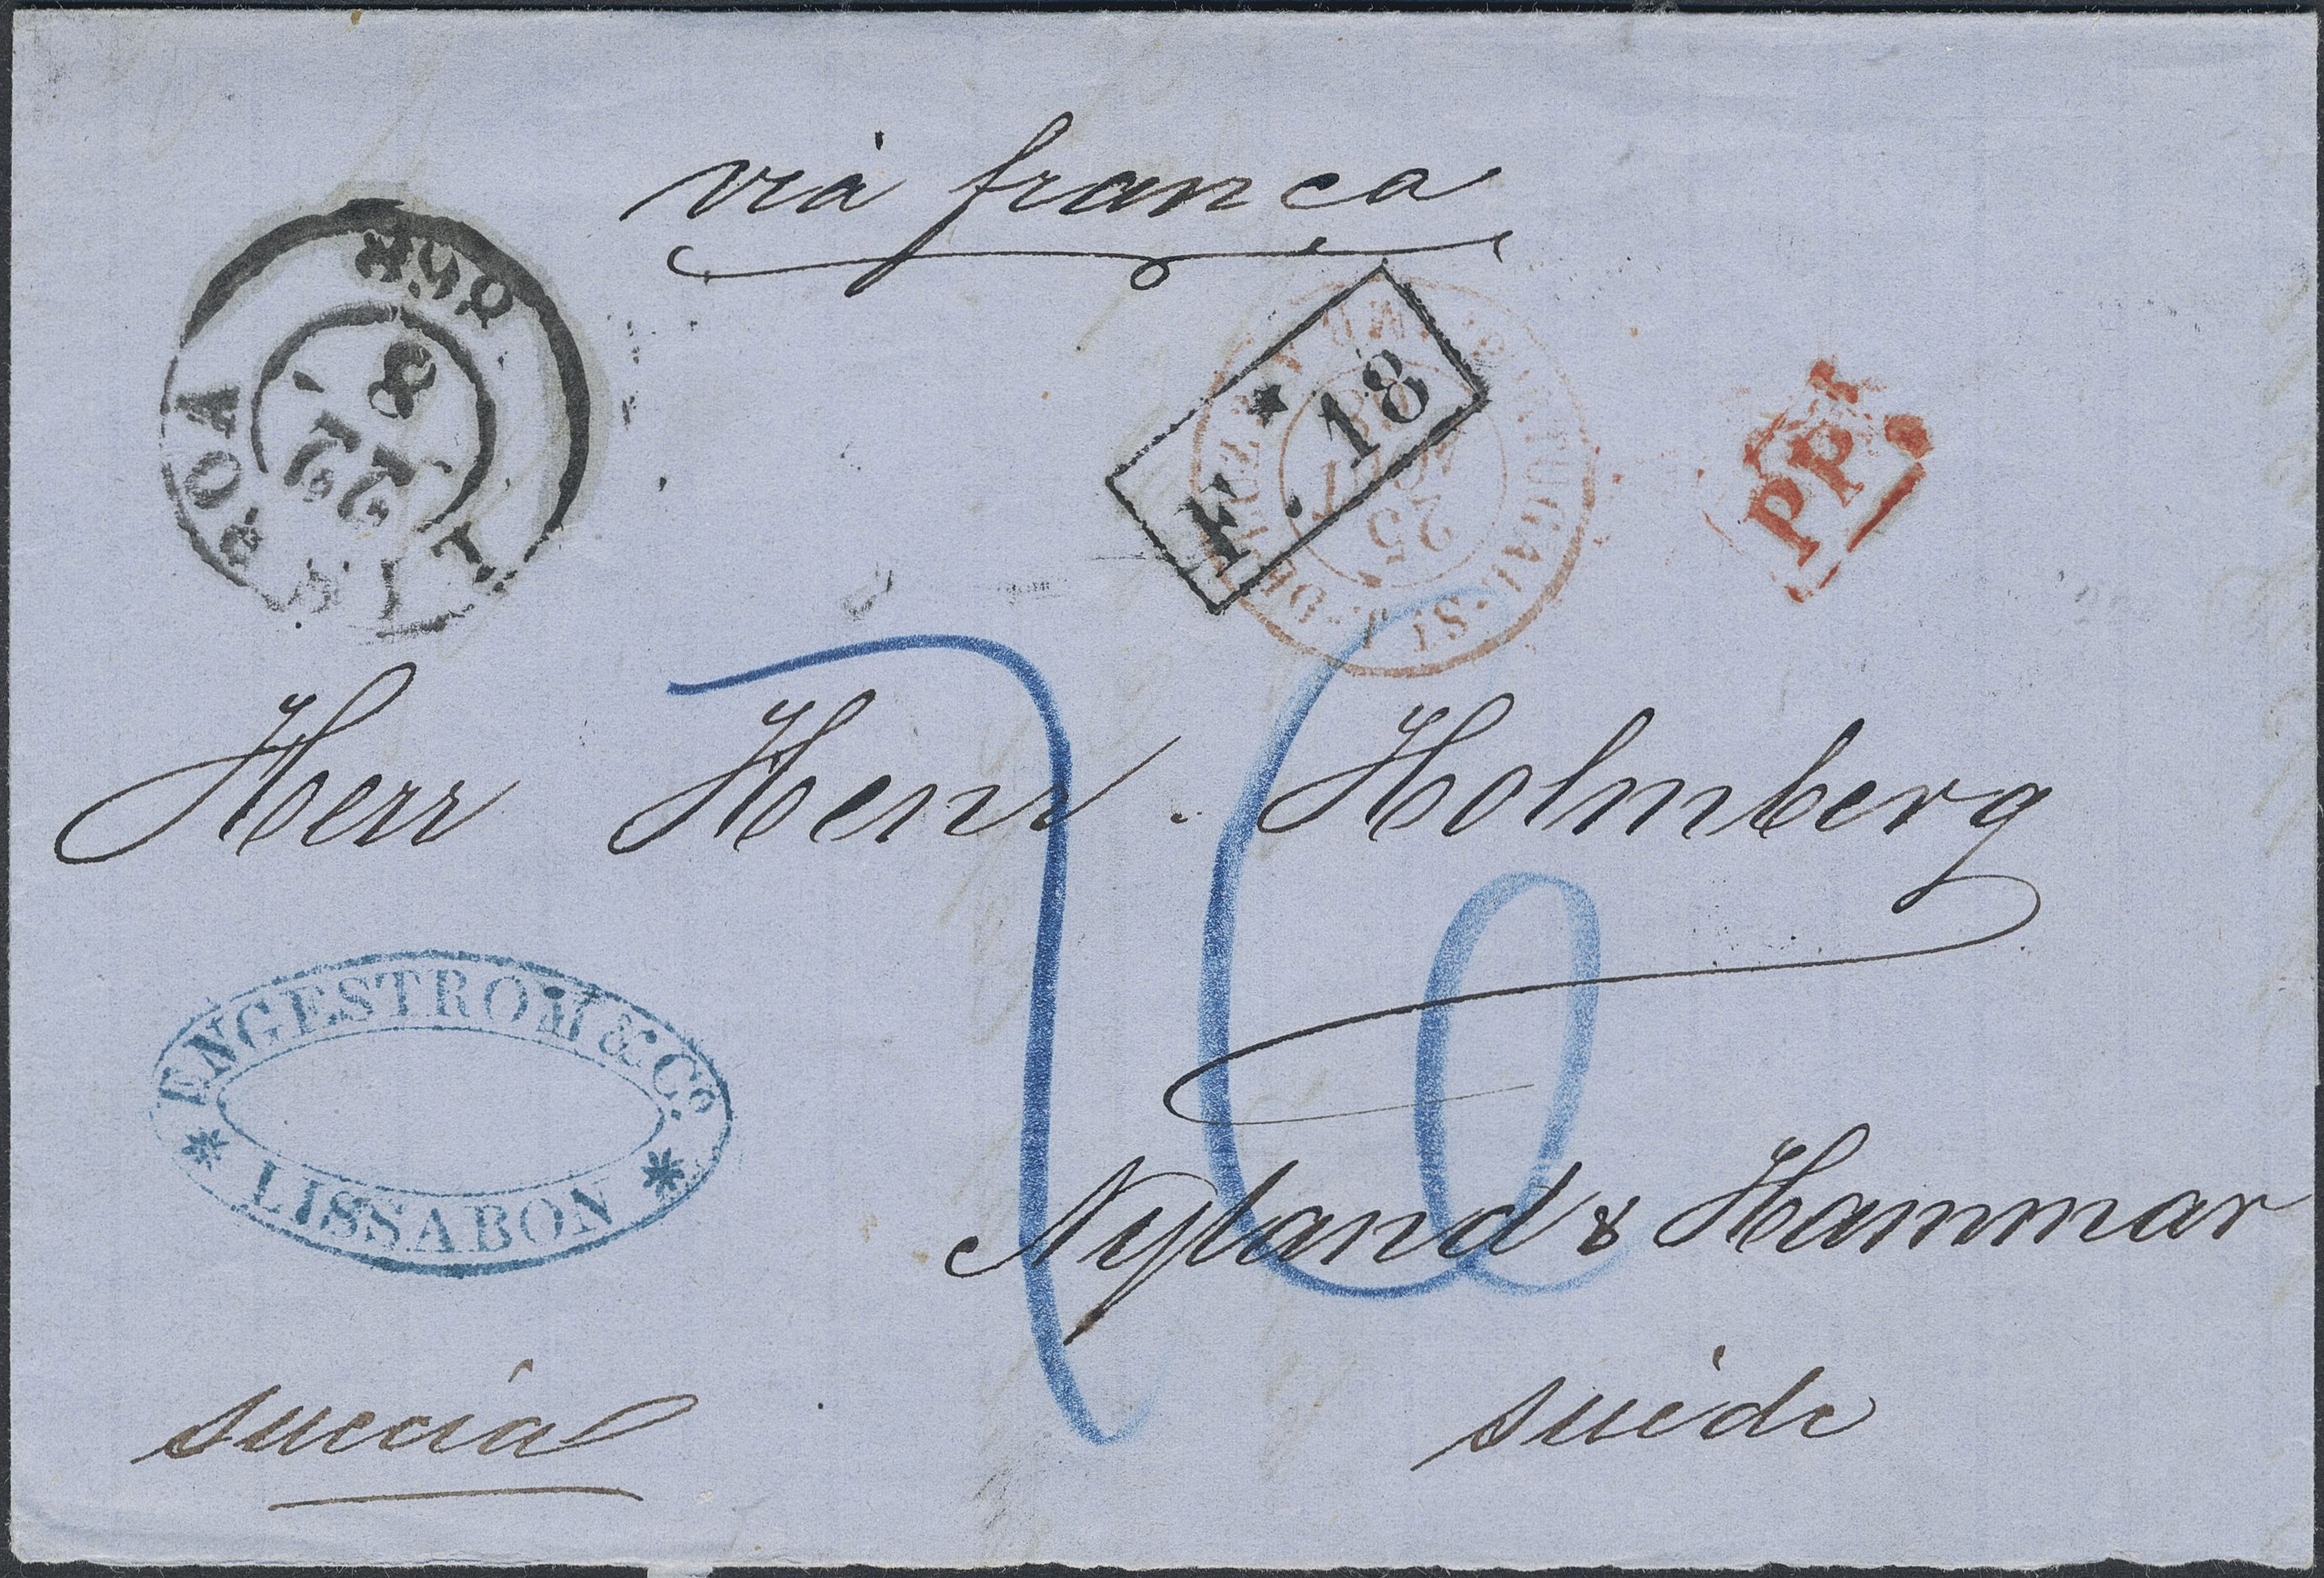 via franca
868
22
8
LISBOA
F. 18
25
AOUT
68
PORTUGAL
ST J. DE LUZ
PP.
Herr Henr. Holmberg
76
ENGESTROM & Co.
LISSABON
Nyland & Hammar
suécia
suède